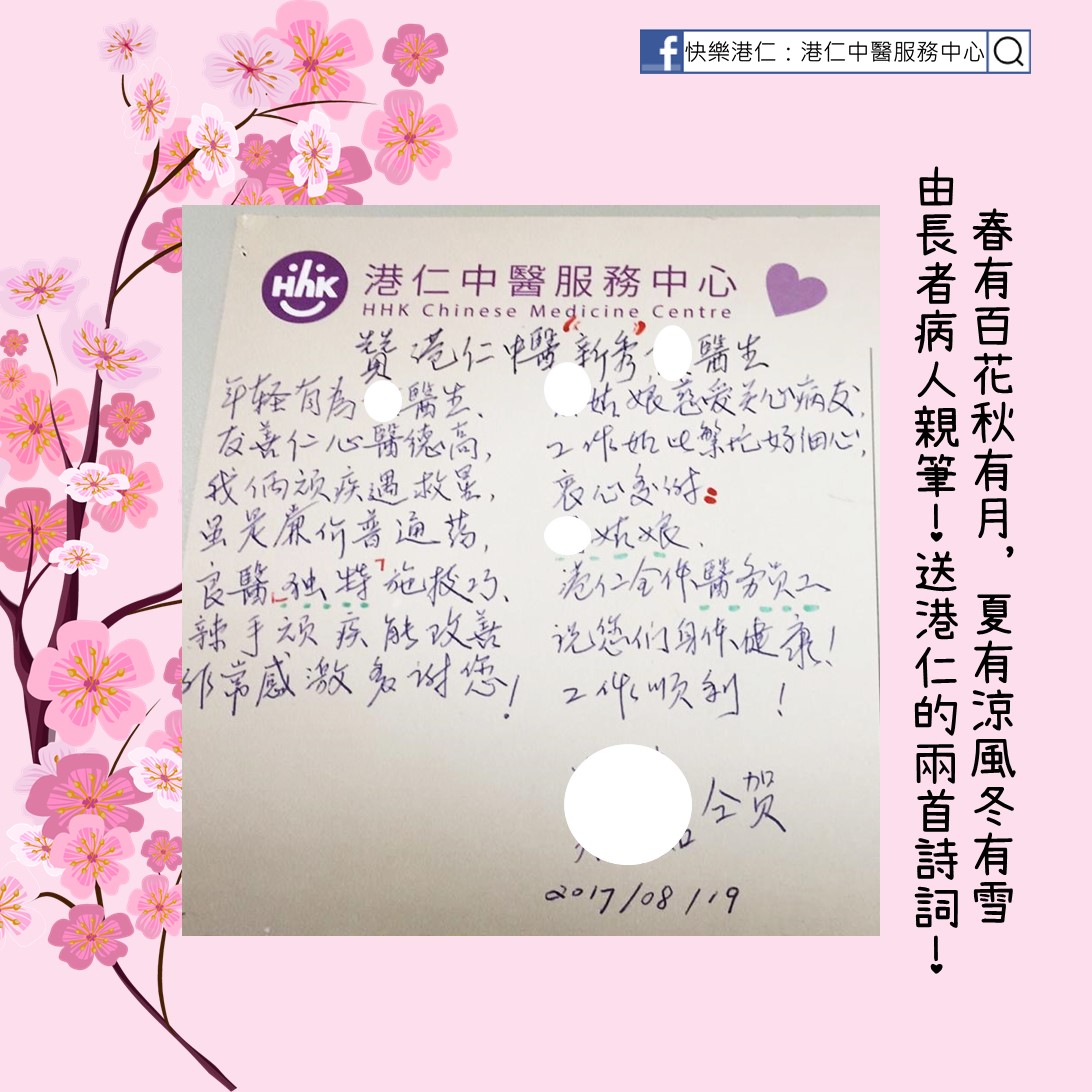 快樂港仁：港仁中醫服務中心
春有百花秋有月，夏有涼風冬有雪
由長者病人親筆！送港仁的兩首詩詞！
HHK
港仁中醫服務中心
HHK Chinese Medicine Centre
贊港仁中醫“新秀”醫生
年轻有为醫生、
友善仁心醫德高，
我俩顽疾遇救星，
虽是廉价普通药，
良醫「独特」施技巧、
辣手顽疾能改善
非常感激多谢您！
姑娘慈爱关心病友，
工作如此繁忙好细心，
衷心多谢：
姑娘、
港仁全体醫务員工
说您们身体健康！
工作顺利！
仝贺
2017/08/19